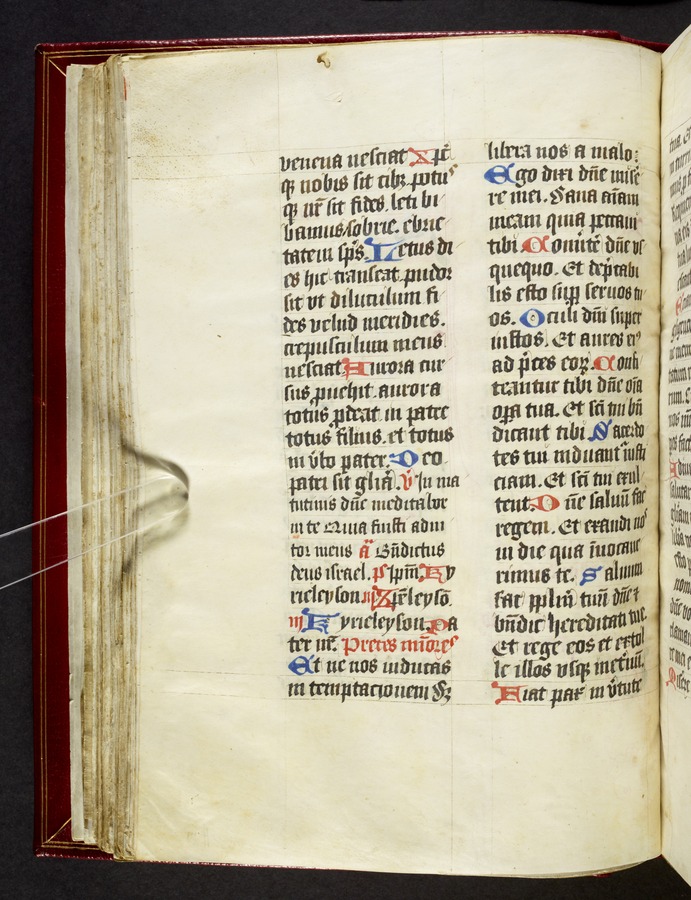 venena nesciat Xp̄c
q̄ nobis sit cibꝫ potuꝰ
q̄ nr̄ sit fides. leti bi
bamus sobrie. ebrie
tatem sp̄s. Letus di
es hic transeat. pudor
sit vt diluculum fi
des velud meridies.
crepusculum mens
nesciat. Aurora cur
sus puehit. aurora
totus p̄deat. in patre
totus filius. et totus
in v̄bo pater. Deo
patri sit glīa. v̄ In ma
tutinis dn̄e meditabor
in te Quia fuisti adiu
tor meus a᷒ Bn̄dictus
deus israel. ps ip̄m. Ky
rieleyson iij Xp̄eleyso.
iij Kyrieleyson. Pa
ter nr̄. Preces mīores
Et ne nos inducas
in temptacionem Sꝫ
libera nos a malo:
Ego dixi dn̄e mise
re mei. Sana aīam
meam quia peccaui
tibi. Conuīte dn̄e vs
quequo. Et dep̄cabi
lis esto sup̄ seruos tu
os. Oculi dn̄i super
iustos. Et aures eiꝰ
ad p̄ces eoꝝ. Confi
teantur tibi dn̄e oīa
oꝑa tua. Et scī tui bn̄
dicant tibi Sacerdo
tes tui induant᷒ iusti
ciam. Et scī tui exul
tent. Dn̄e saluū fac
regem. Et exaudi nos
in die qua īuocaue
rimus te. Saluum
fac pplm̄ tuū dn̄e ⁊
bn̄dic hereditati tue.
Et rege eos et extol
le illos vsqꝫ in et̄nū.
Fiat pax in v̄tute